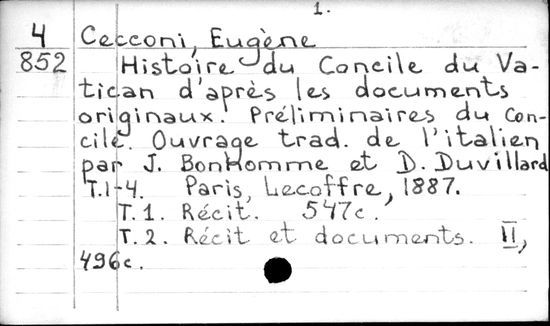 1.
4 Cecconi, Eugène
852 Histoire du Concile du Va-
tican d'après les documents
originaux. Préliminaires du con-
cile. Ouvrage trad. de l'italien
par J. Bonhomme et D. Duvillard
T.1-4. Paris, Lecoffre, 1887.
T. 1. Récit. 547c.
T. 2. Récit et documents. II,
496c.